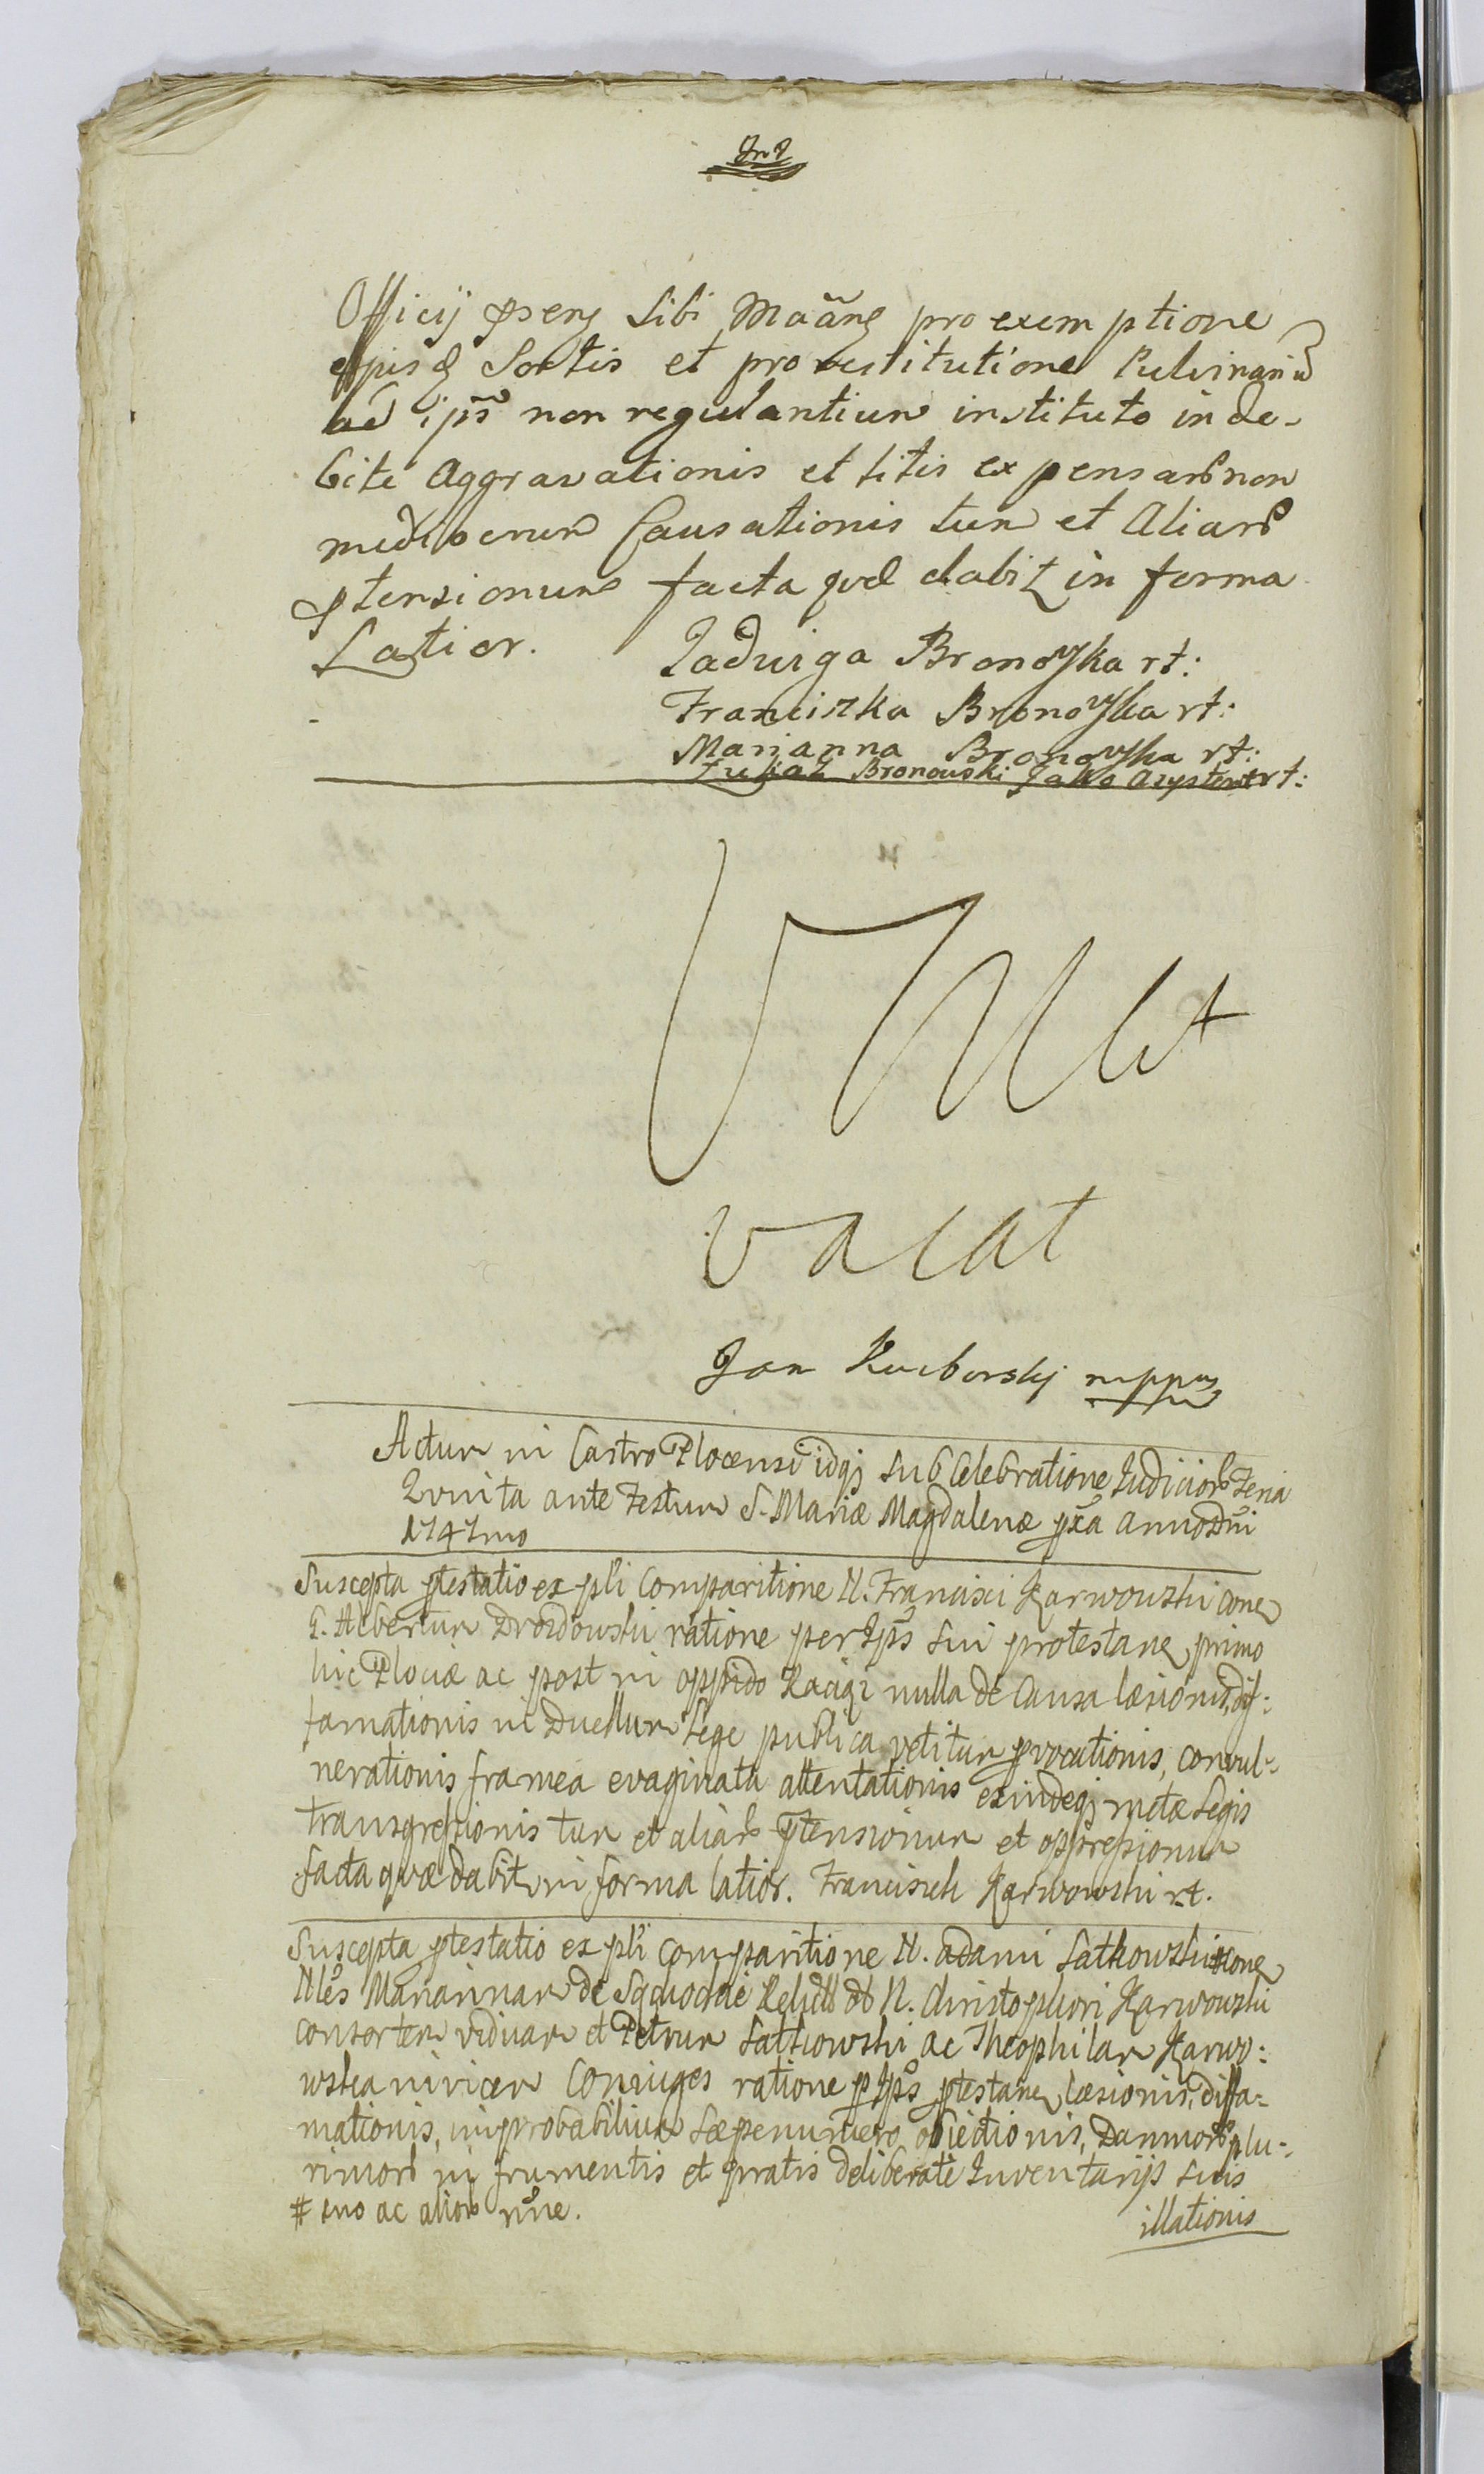 Officij pseng Sibi Maãng pro exemptione
ejusq Sortis et pro restitutione Pulvinariu
ad ips non regulantium instituto inde-
bite Aggravationis et litis expensarũ non
mediocrum Causationis tum et Aliarũ
ptensionum facta qvæ dabit in forma
Latior. Jadwiga Bronowska rt:
Franciszka Bronowska rt:
Marianna Bronowska rt:
Łukasz Bronowski Jako Asystent rt:
Vacat
vacat
Jan Kucborskj mppa
Actum in Castro Plocensi idqz sub Celebratione Judiciorũ Feria
Qvinta ante Festum S. Mariæ Magdalenæ pxa anno Dni
1747mo
Suscepta ptestatio ex psli Comparitione N. Francisci Karwowski cone
G. Albertum Drozdowski ratione per Ips sui protestane primo
hic Plociæ ac post in oppido Raciąż nulla de Causa læsionis, dif:
famationis in Duellum Lege publica vetitum pvocationis, convul:
nerationis framea evaginata attentationis exindeqz metæ Legis
transgressionis tum et aliarũ ptensionum et oppressionum
facta qvæ dabit in forma latior. Franciszek Karwowski rt.
Suscepta ptestatio ex psli comparitione N. Adami Łatkowski # cone
Nles Mariannam de olim N. Christophori Karwowski
consortem viduam et Petrum Łatkowski ac Theophilam Karwo:
wska invicem Coniuges ratione p Ips ptestane læsionis, diffa-
mationis, improbabilium sæpenumero obiectionis, Damnorũ plu:
rimorũ in frumentis et pratis deliberate Inventarijs suis
# suo ac aliorũ nne. illationis